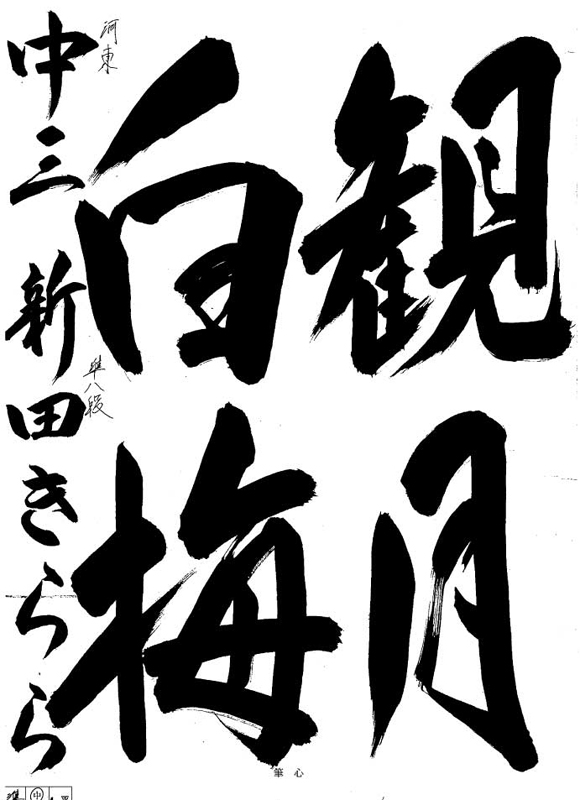 観月
白梅
河東
中三 新田きらら
準八段
心筆
中